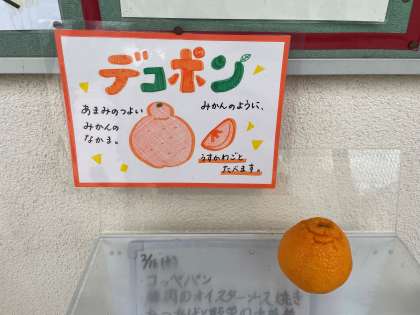 デコポン
あまみのつよい
みかんの
なかま。
みかんのように、
うすかわごと
たべます。
コッペパン
鶏肉のオイスターソース焼き